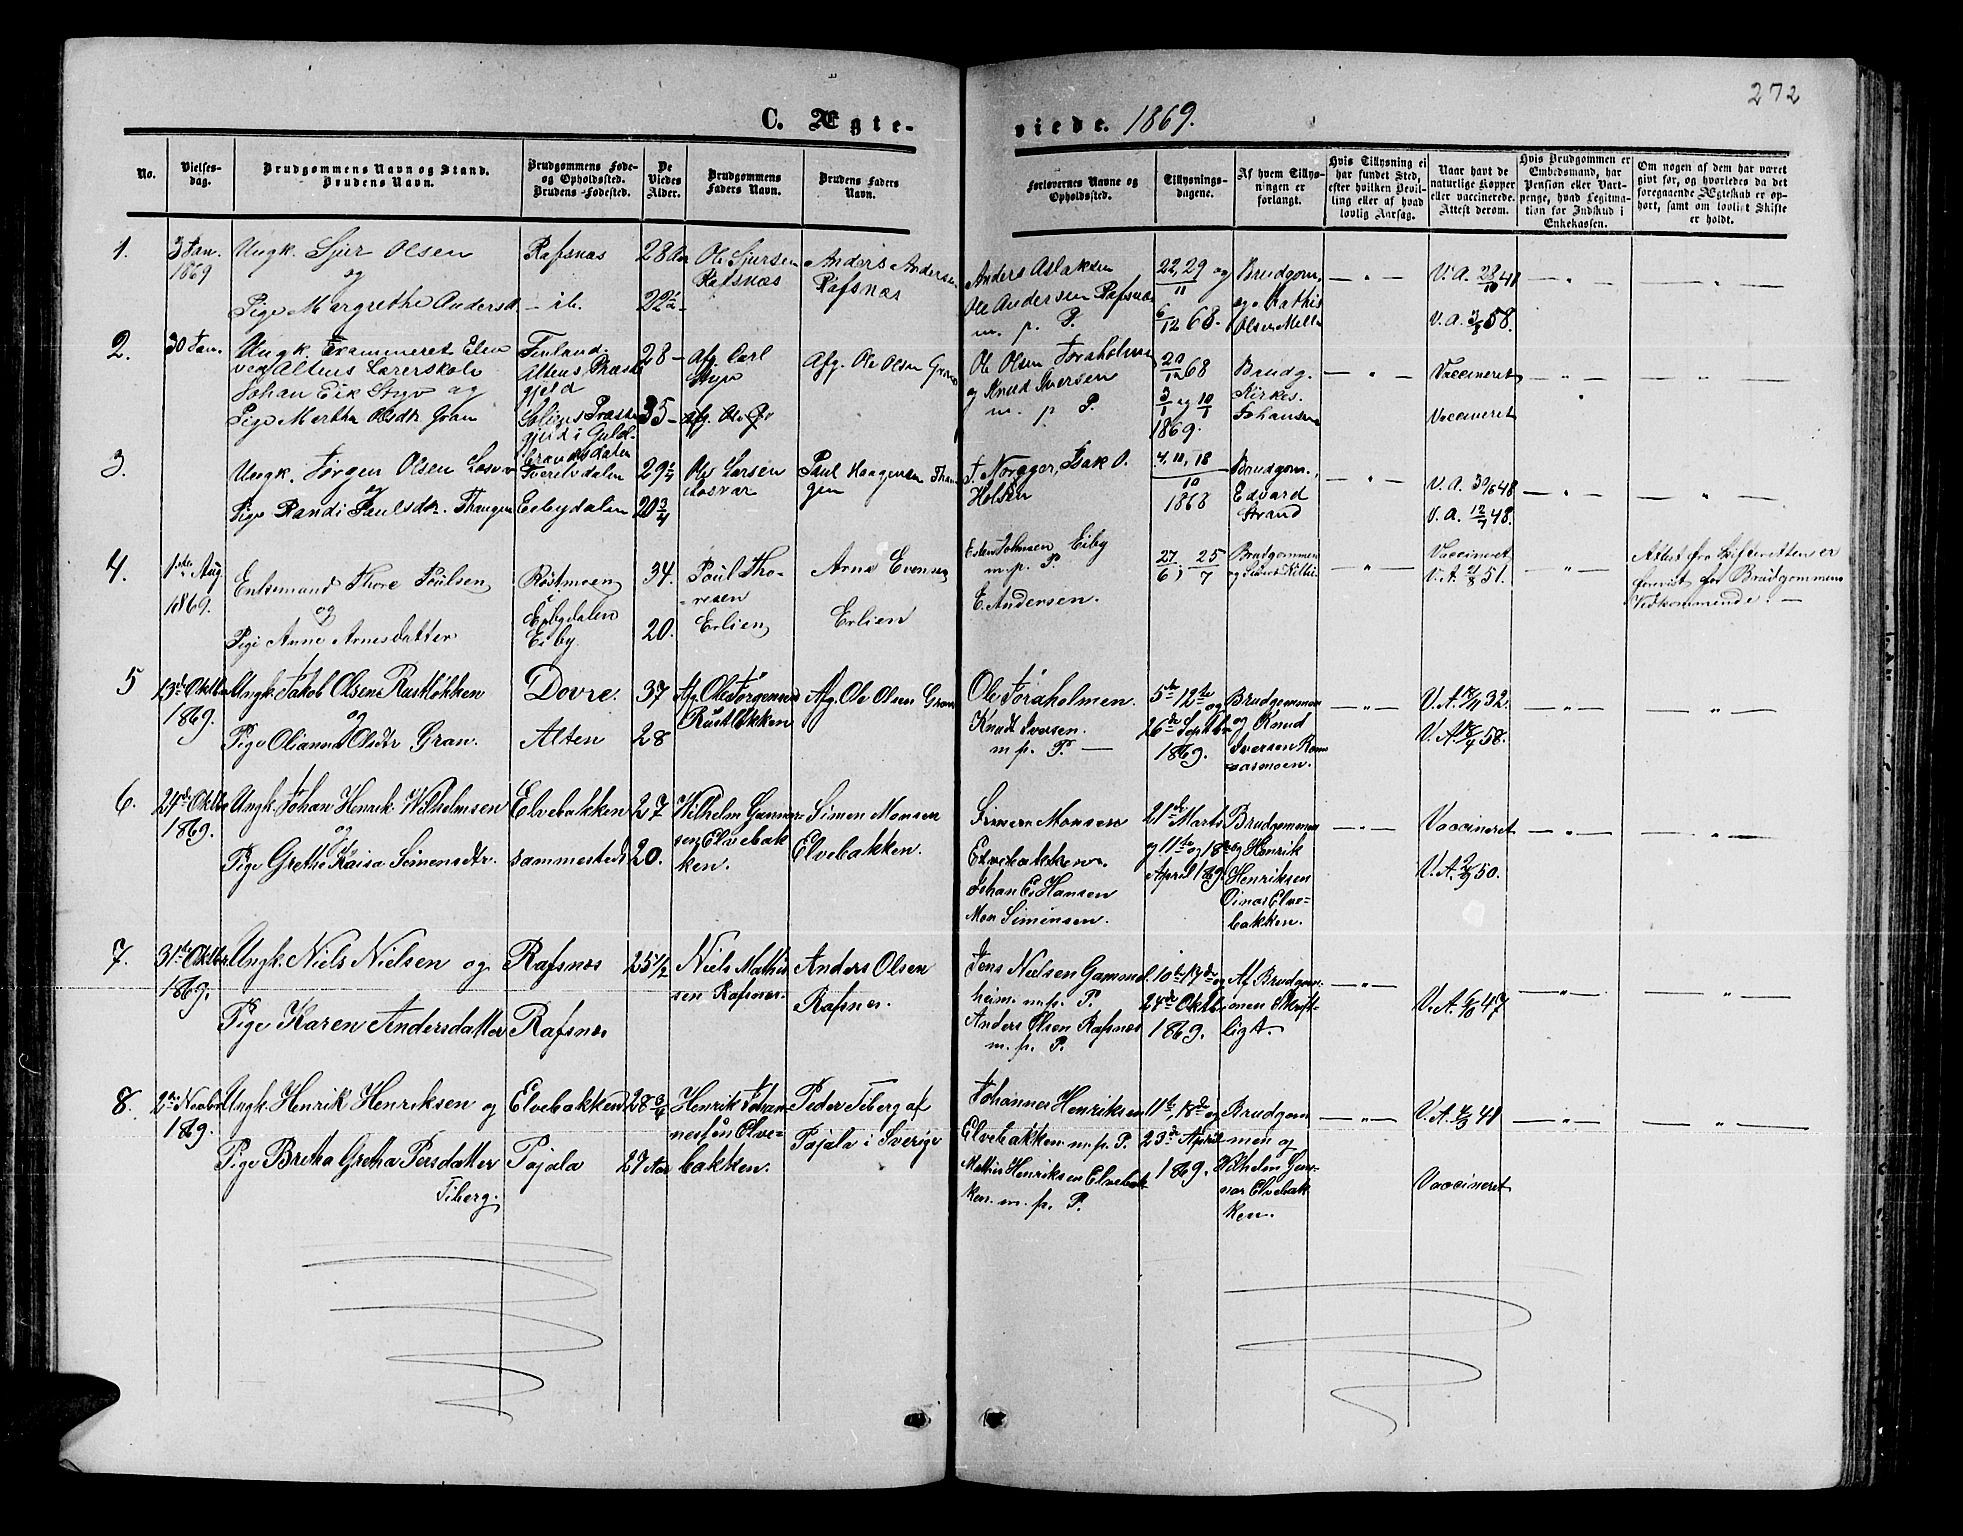 272
C. Ægte-
viede. 1869.
No.
Vielses-
dag.
Brudgommens Navn og Stand.
Brudens Navn.
Brudgommens Føde-
og Opholdssted.
Brudens -Fødested.
De
Viedes
Alder.
Brudgommens
Faders Navn.
Brudens Faders
Navn.
Forlovernes Navne og
Opholdssted.
Tillysnings-
dagene.
Af hvem Tillys-
ningen er
forlangt.
Hvis Tillysning ei
har fundet Sted,
efter hvilken Bevil-
ling eller af hvad
lovlig Aarsag.
Naar havt de
naturlige Kopper
eller vaccinerede.
Attest derom.
Hvis Brudgommen er
Embedsmand, har
Pension eller Vart-
penge, hvad Legitima-
tion for Indskud i
Enkekassen.
Om nogen af dem har været
givt før, og hvorledes da det
foregaaende Ægteskab er op-
hørt, samt om lovligt Skifte
er holdt.
1.
3 Jan.
1869
Ungk. Sjur Olsen
og
Pige Margrethe Andersd
Rafsnæs
– ib.
28 Aar
22½
Ole Sjursen
Rafsnæs
Anders Andersen
Rafsnæs
Anders Aslaksen
Ole Andersen Rafsnæs
m. p. P.
22, 29 og
11
6/12 68.
Brudgom.
og Mathis
Olsen
V. A. 41
V. A. 58.
2.
30 Jan.
Ungk. Examineret Elev
ved Altens Lærerskole
Johan Eik Styv og
Pige Martha Olsdtr Gran
Finland
Altens Præste
gjeld
Præste
gjeld i Guld-
brandsdalen
28 –
35 –
Afg. Carl
Styv
Afg. Ole
Afg. Ole Olsen Gran
Ole Olsen Joraholmen
og Knud Iversen
m. p. P.
20/12 68
3/1 og 10/1
1869.
Brudg.
Kirkes.
Johansen
Vaccineret
Vaccineret
3.
Ungk. Jørgen Olsen Losvar
og
Pige Randi Paulsdtr. Thangen
Tverelvdalen
Eibydalen
29½
20¾
Ole Larsen
Losvar
Paul Haagensen Than
gen
J. Norager, Isak O.
Holten
4, 10, 18
10
1868
Brudgom.,
Edvard
Strand
V. A. 48
V. A. 12/7 48.
4.
1ste Aug
1869.
Enkemand Thore Poulsen
og
Pige Anne Arnesdatter
Røstmoen
i
Eibydalen
Eiby
34.
20.
Poul Tho-
resen
Erlien
Arne Evensen
Erlien
Esten Johnsen Eiby
m. p. P
E. Andersen.
27/6, 25/7
Brudgommen
Vaccineret
V. A. 21/8 51.
Attest fra Skifteretten er
forevist for Brudgommens
Vedkommende. –
5
13de Oktbr
1869.
Ungk. Jakob Olsen Rustløkken
og
Pige Olianna Olsdtr Gran.
Dovre
Alten
37
28
Afg. Ole Jørgensen
Rustløkken
Afg. Ole Olsen Gran
Ole Joraholmen.
Knudt Iversen.
m. p. P. –
5te 12te og
26de Septbr
1869.
Brudgommen
og Knud
Iversen Rom-
asmoen.
V. A. 32.
V. A. 58.
6.
24de Oktbr
1869.
Ungk. Johan Henrik Wilhelmsen
og
Pige Grethe Kaisa Simensdtr.
Elvebakken
sammesteds
27
20.
Wilhelm Gunnar-
sen Elvebak
ken.
Simen Monsen
Elvebakken.
Simen Monsen
Elvebakken.
Johan E. Hansen
Mon Simensen.
21de Marts
og 11te og 18de
April 1869.
Brudgommen
og Henrik
Henriksen
Oinas Elve-
bakken.
Vaccineret
V. A. 50.
7.
31te Oktbr.
1869.
Ungk. Niels Nielsen og
Pige Karen Andersdatter
Rafsnæs
Rafsnæs
25½
Niels Mathis
sen Rafsnæs.
Anders Olsen
Rafsnæs.
Jens Nielsen Gammel
heim. m. p. P.
Anders Olsen Rafsnæs
m. p. P.
10de 17de og
24de Oktbr
1869.
Af Brudgom-
men Skrift-
ligt.
V. A. 6/10 47
8.
2den Novbr
1869.
Ungk. Henrik Henriksen og
Pige Bretha Gretha Persdatter
Fiberg.
Elvebakken
Pajala
28¾
27 Aar
Henrik Johan
nessøn Elve-
bakken.
Peder Fiberg af
Pajala i Sverige
Johannes Henriksen
Elvebakken m. p. P.
Mathis Henriksen Elvebak
ken. m. p. P.
11te, 18de og
23de April
1869.
Brudgom
men og
Vilhelm Gun-
nar Elvebak
ken.
V. A. 48
Vaccineret